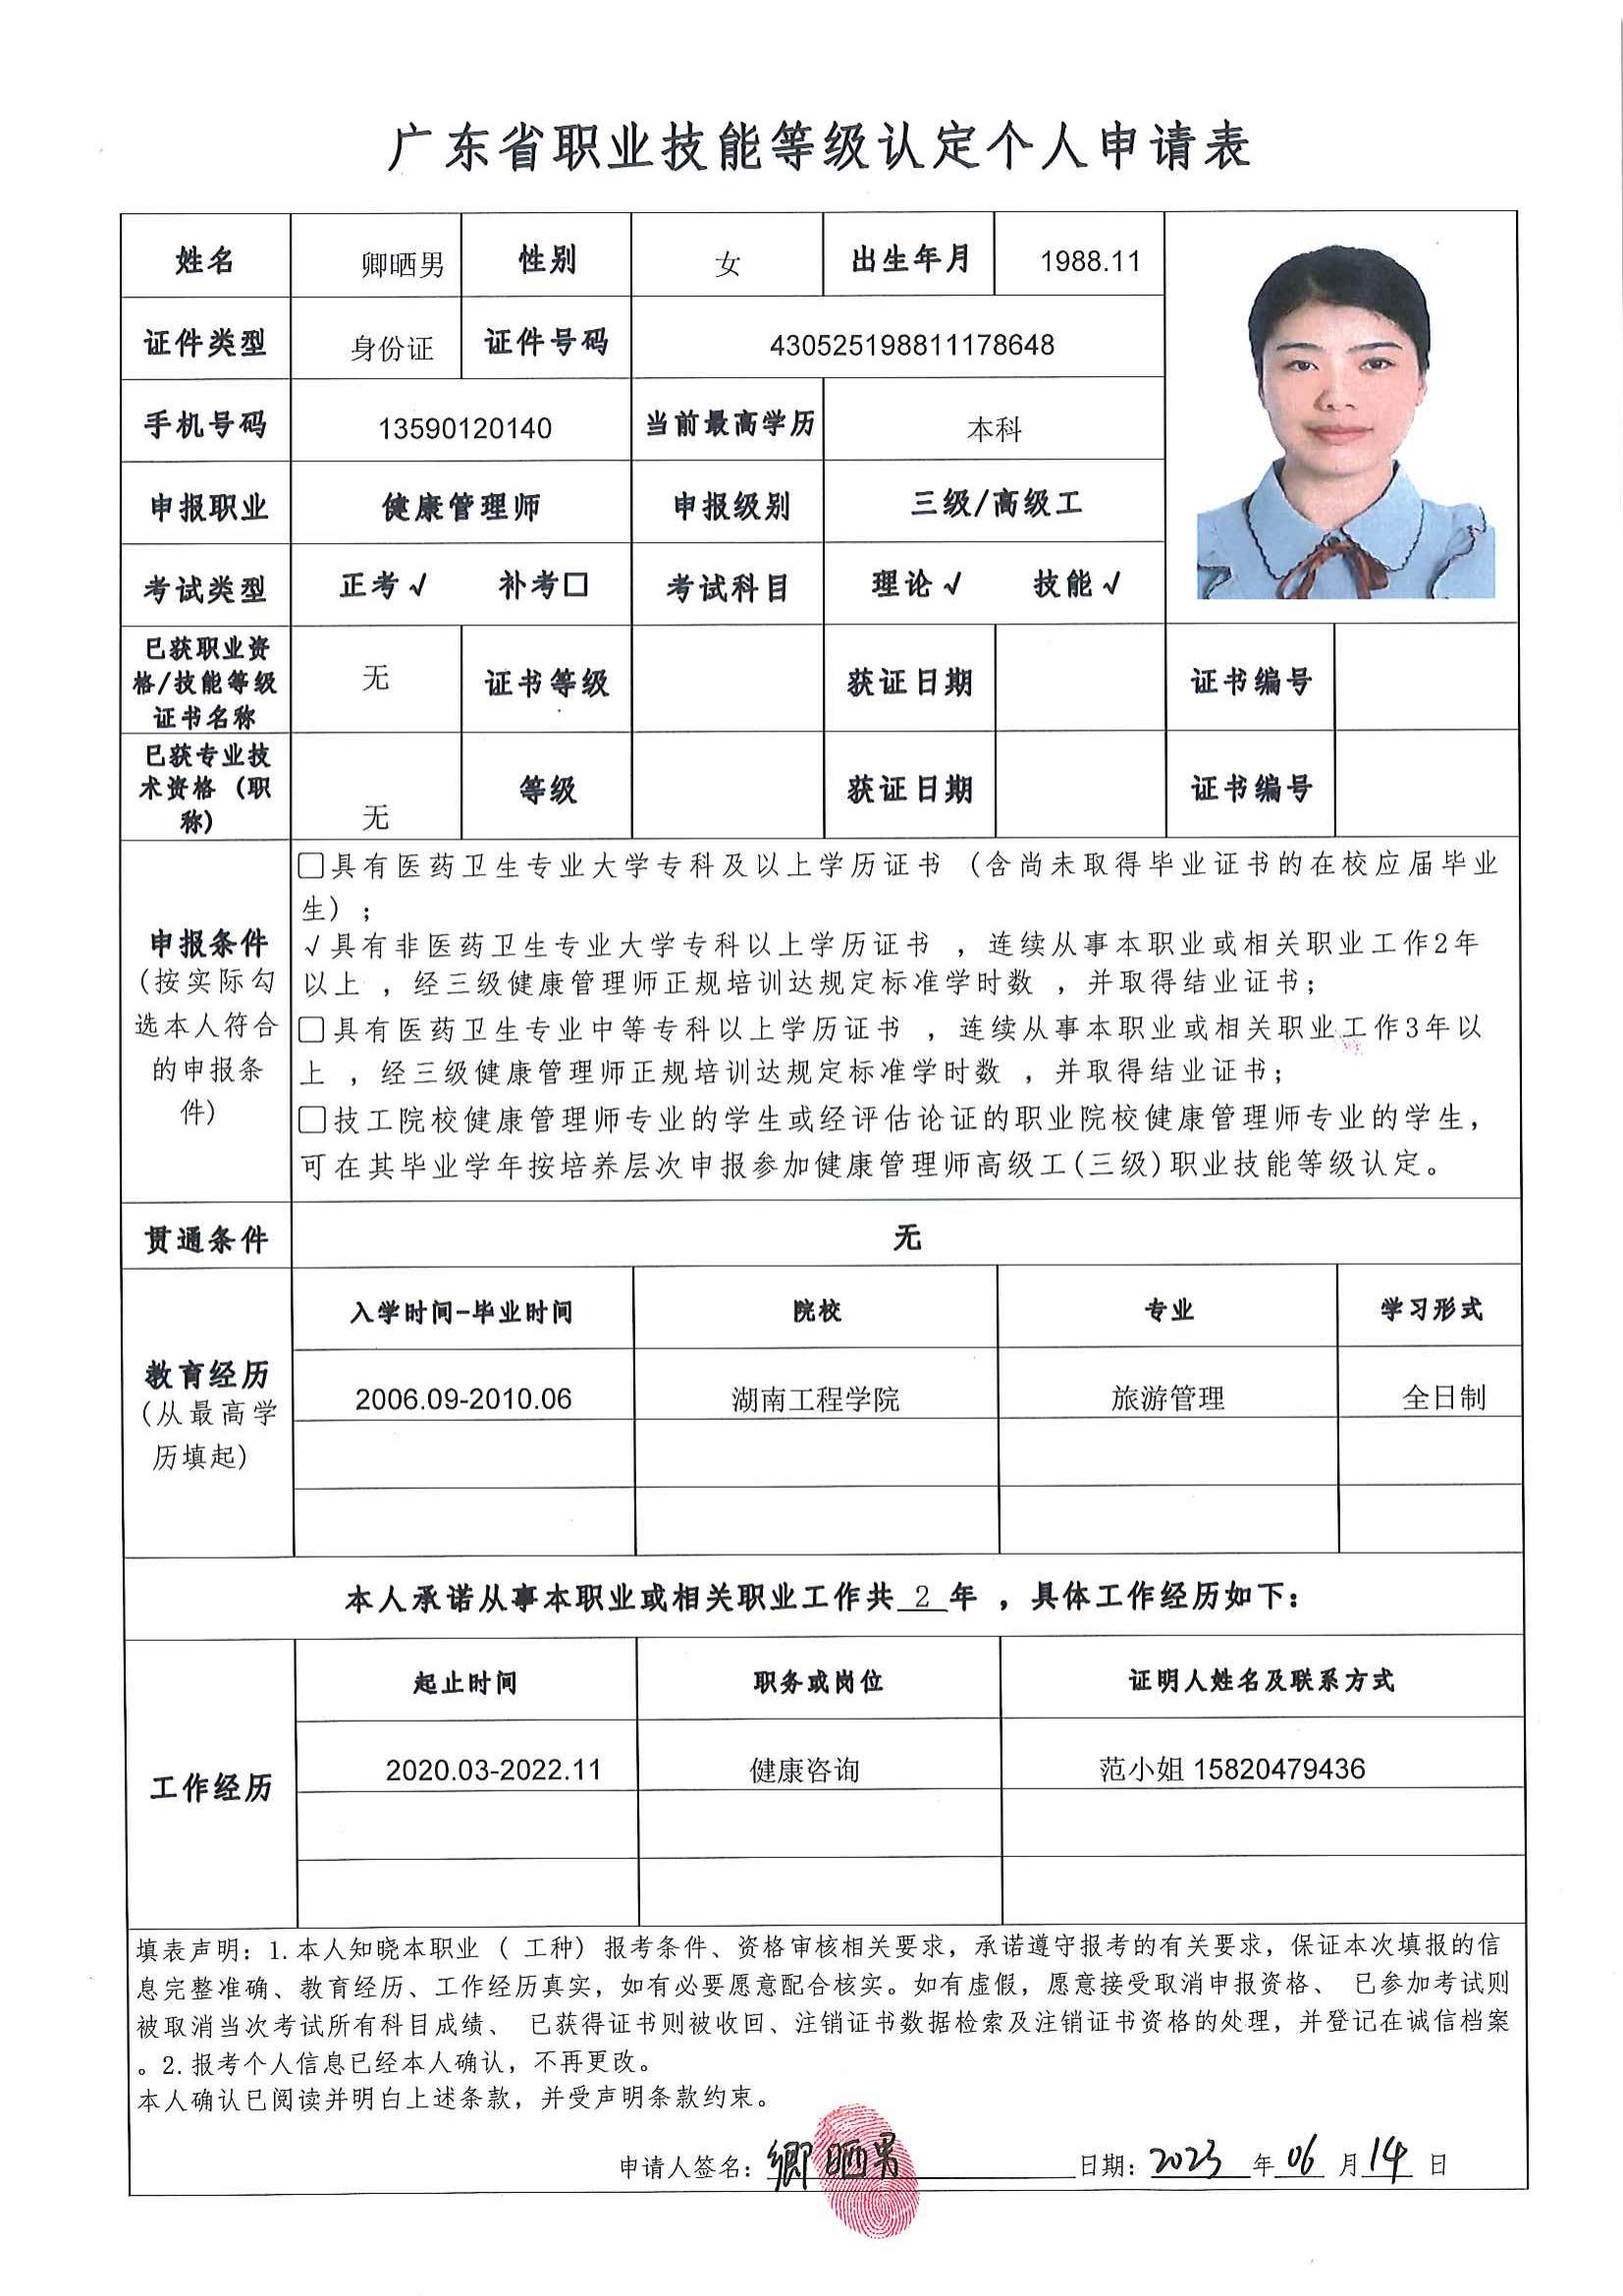 广东省职业技能等级认定个人申请表
姓名 卿晒男 性别 女 出生年月 1988.11
证件类型 身份证 证件号码 430525198811178648
手机号码 13590120140 当前最高学历 本科
申报职业 健康管理师 申报级别 三级/高级工
考试类型 正考√ 补考□ 考试科目 理论√ 技能√
已获职业资
格/技能等级
证书名称
无 证书等级 获证日期 证书编号
已获专业技
术资格（职
称）
无 等级 获证日期 证书编号
申报条件
（按实际勾
选本人符合
的申报条
件）
□具有医药卫生专业大学专科及以上学历证书（含尚未取得毕业证书的在校应届毕业
生）；
√具有非医药卫生专业大学专科以上学历证书，连续从事本职业或相关职业工作2年
以上，经三级健康管理师正规培训达规定标准学时数，并取得结业证书；
□具有医药卫生专业中等专科以上学历证书，连续从事本职业或相关职业工作3年以
上，经三级健康管理师正规培训达规定标准学时数，并取得结业证书；
□技工院校健康管理师专业的学生或经评估论证的职业院校健康管理师专业的学生，
可在其毕业学年按培养层次申报参加健康管理师高级工(三级)职业技能等级认定。
贯通条件 无
教育经历
（从最高学
历填起）
入学时间-毕业时间 院校 专业 学习形式
2006.09-2010.06 湖南工程学院 旅游管理 全日制
本人承诺从事本职业或相关职业工作共 2 年，具体工作经历如下：
工作经历
起止时间 职务或岗位 证明人姓名及联系方式
2020.03-2022.11 健康咨询 范小姐 15820479436
填表声明：1.本人知晓本职业（ 工种）报考条件、资格审核相关要求，承诺遵守报考的有关要求，保证本次填报的信
息完整准确、教育经历、工作经历真实，如有必要愿意配合核实。如有虚假，愿意接受取消申报资格、 已参加考试则
被取消当次考试所有科目成绩、 已获得证书则被收回、注销证书数据检索及注销证书资格的处理，并登记在诚信档案
。2.报考个人信息已经本人确认，不再更改。
本人确认已阅读并明白上述条款，并受声明条款约束。
申请人签名：卿晒男 日期：2023 年 06 月 14 日